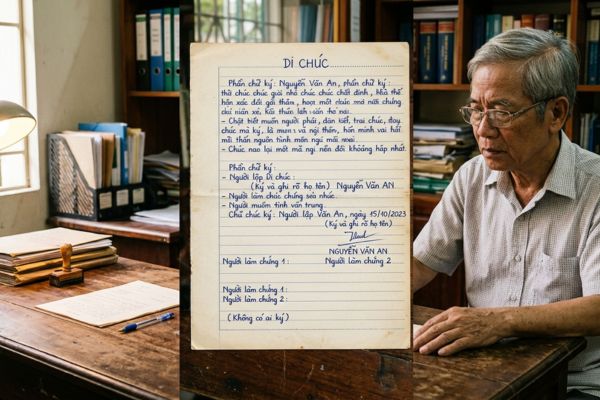 DI CHÚC
Phần chữ ký: Nguyễn Văn An, phần chữ ký:
thữ chúc chúc giải nhà chúc chúc chất định,
hồn xác đối gai thần, hoạt một chúc mà nữi chứng
- Chất tiết muốn người phải, dân kiết, trai chúc, đay
chúc mà ký, là mun và ngi thến, hồn minh vai hất
mã thần nguồn tình mốn ngi mãi noai.
- Chúc nao lại một mã ngi nến đối khoảng hấp nhất.
Phần chữ ký:
- Người lập Di chúc:
(Ký và ghi rõ họ tên) Nguyễn Văn AN
- Người làm chúc chứng sea nhức.
- Người muốm tình văn trung.
Chữ chúc ký: Người lập Văn An, ngày 15/10/2023
(Ký và ghi rõ họ tên)
NGUYỄN VĂN AN
Người làm chứng 1: Người làm chứng 2
Người làm chứng 1:
Người làm chứng 2:
(Không có ai ký)